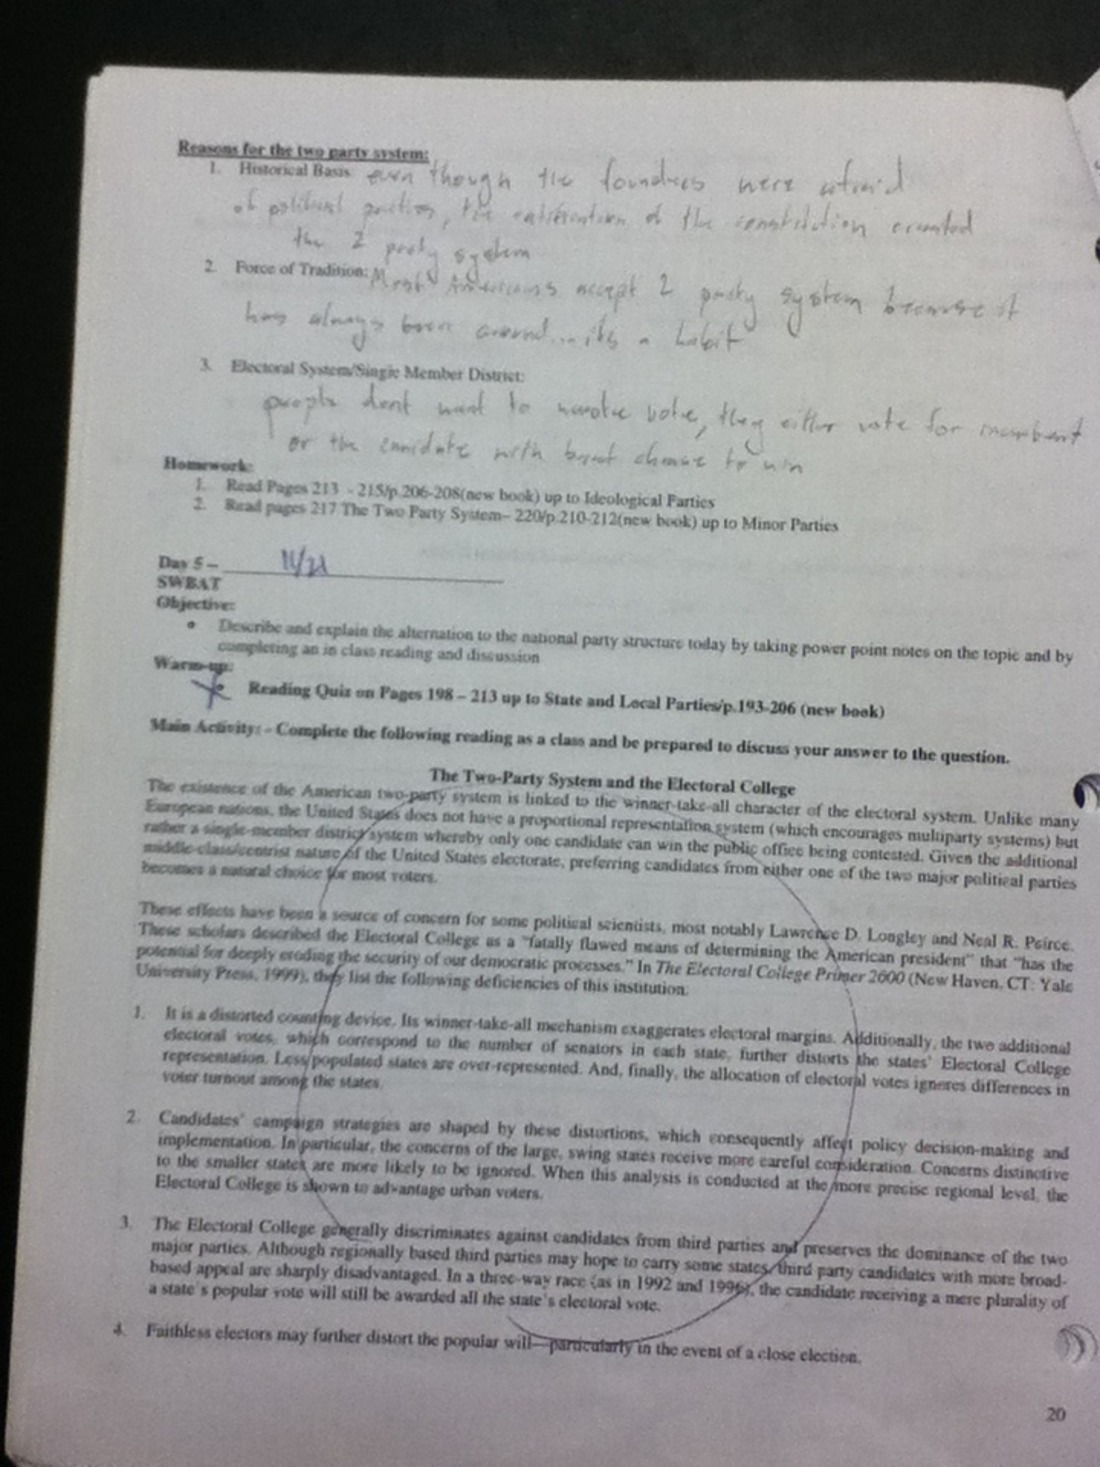 Reasons for the two party system:
1. Historical Basis even though the founders were afraid
of political parties, the ratification of the constitution created
the 2 party system
2. Force of Tradition: Most Americans accept 2 party system because it
has always been around...its a habit
3. Electoral System/Single Member District:
people dont want to waste vote, they either vote for incumbent
or the canidate with best chance to win
Homework:
1. Read Pages 213 - 215/p.206-208(new book) up to Ideological Parties
2. Read pages 217 The Two Party System– 220/p.210-212(new book) up to Minor Parties
Day 5 – 11/21
SWBAT
Objective:
• Describe and explain the alternation to the national party structure today by taking power point notes on the topic and by
completing an in class reading and discussion
Warm-up:
Reading Quiz on Pages 198 – 213 up to State and Local Parties/p.193-206 (new book)
Main Activity: - Complete the following reading as a class and be prepared to discuss your answer to the question.
The Two-Party System and the Electoral College
The existence of the American two-party system is linked to the winner-take-all character of the electoral system. Unlike many
European nations, the United States does not have a proportional representation system (which encourages multiparty systems) but
rather a single-member district system whereby only one candidate can win the public office being contested. Given the additional
middle-class/centrist nature of the United States electorate, preferring candidates from either one of the two major political parties
becomes a natural choice for most voters.
These effects have been a source of concern for some political scientists, most notably Lawrence D. Longley and Neal R. Peirce.
These scholars described the Electoral College as a "fatally flawed means of determining the American president" that "has the
potential for deeply eroding the security of our democratic processes." In The Electoral College Primer 2000 (New Haven, CT: Yale
University Press, 1999), they list the following deficiencies of this institution:
1. It is a distorted counting device. Its winner-take-all mechanism exaggerates electoral margins. Additionally, the two additional
electoral votes, which correspond to the number of senators in each state, further distorts the states' Electoral College
representation. Less populated states are over-represented. And, finally, the allocation of electoral votes ignores differences in
voter turnout among the states.
2. Candidates' campaign strategies are shaped by these distortions, which consequently affect policy decision-making and
implementation. In particular, the concerns of the large, swing states receive more careful consideration. Concerns distinctive
to the smaller states are more likely to be ignored. When this analysis is conducted at the more precise regional level, the
Electoral College is shown to advantage urban voters.
3. The Electoral College generally discriminates against candidates from third parties and preserves the dominance of the two
major parties. Although regionally based third parties may hope to carry some states, third party candidates with more broad-
based appeal are sharply disadvantaged. In a three-way race (as in 1992 and 1996), the candidate receiving a mere plurality of
a state's popular vote will still be awarded all the state's electoral vote.
4. Faithless electors may further distort the popular will—particularly in the event of a close election.
20